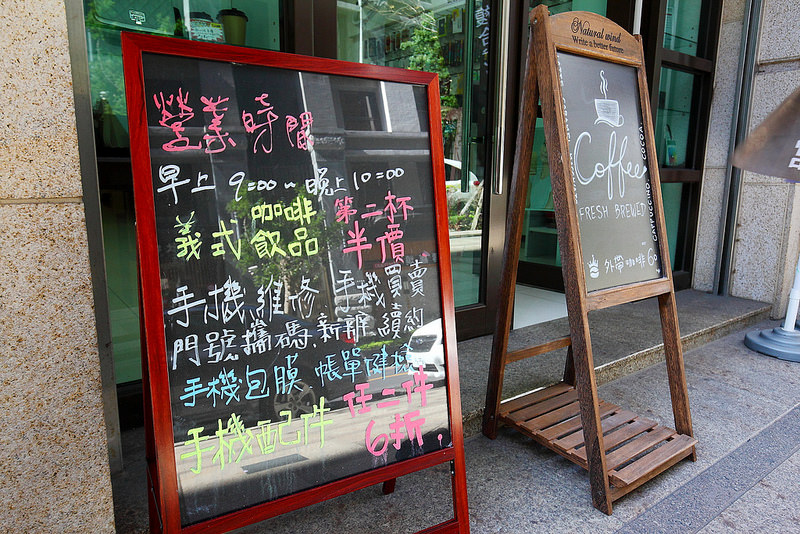 營業時間
早上 9:00 ~ 晚上 10:00
義式
咖啡
飲品
第二杯
半價
手機維修 手機買賣
門號攜碼.新辦.續約
手機包膜 帳單降
手機配件
任二件
6折
Natural wind
Write a better future
Coffee
FRESH BREWED
CAPPUCCINO
COCOA
外帶咖啡 60